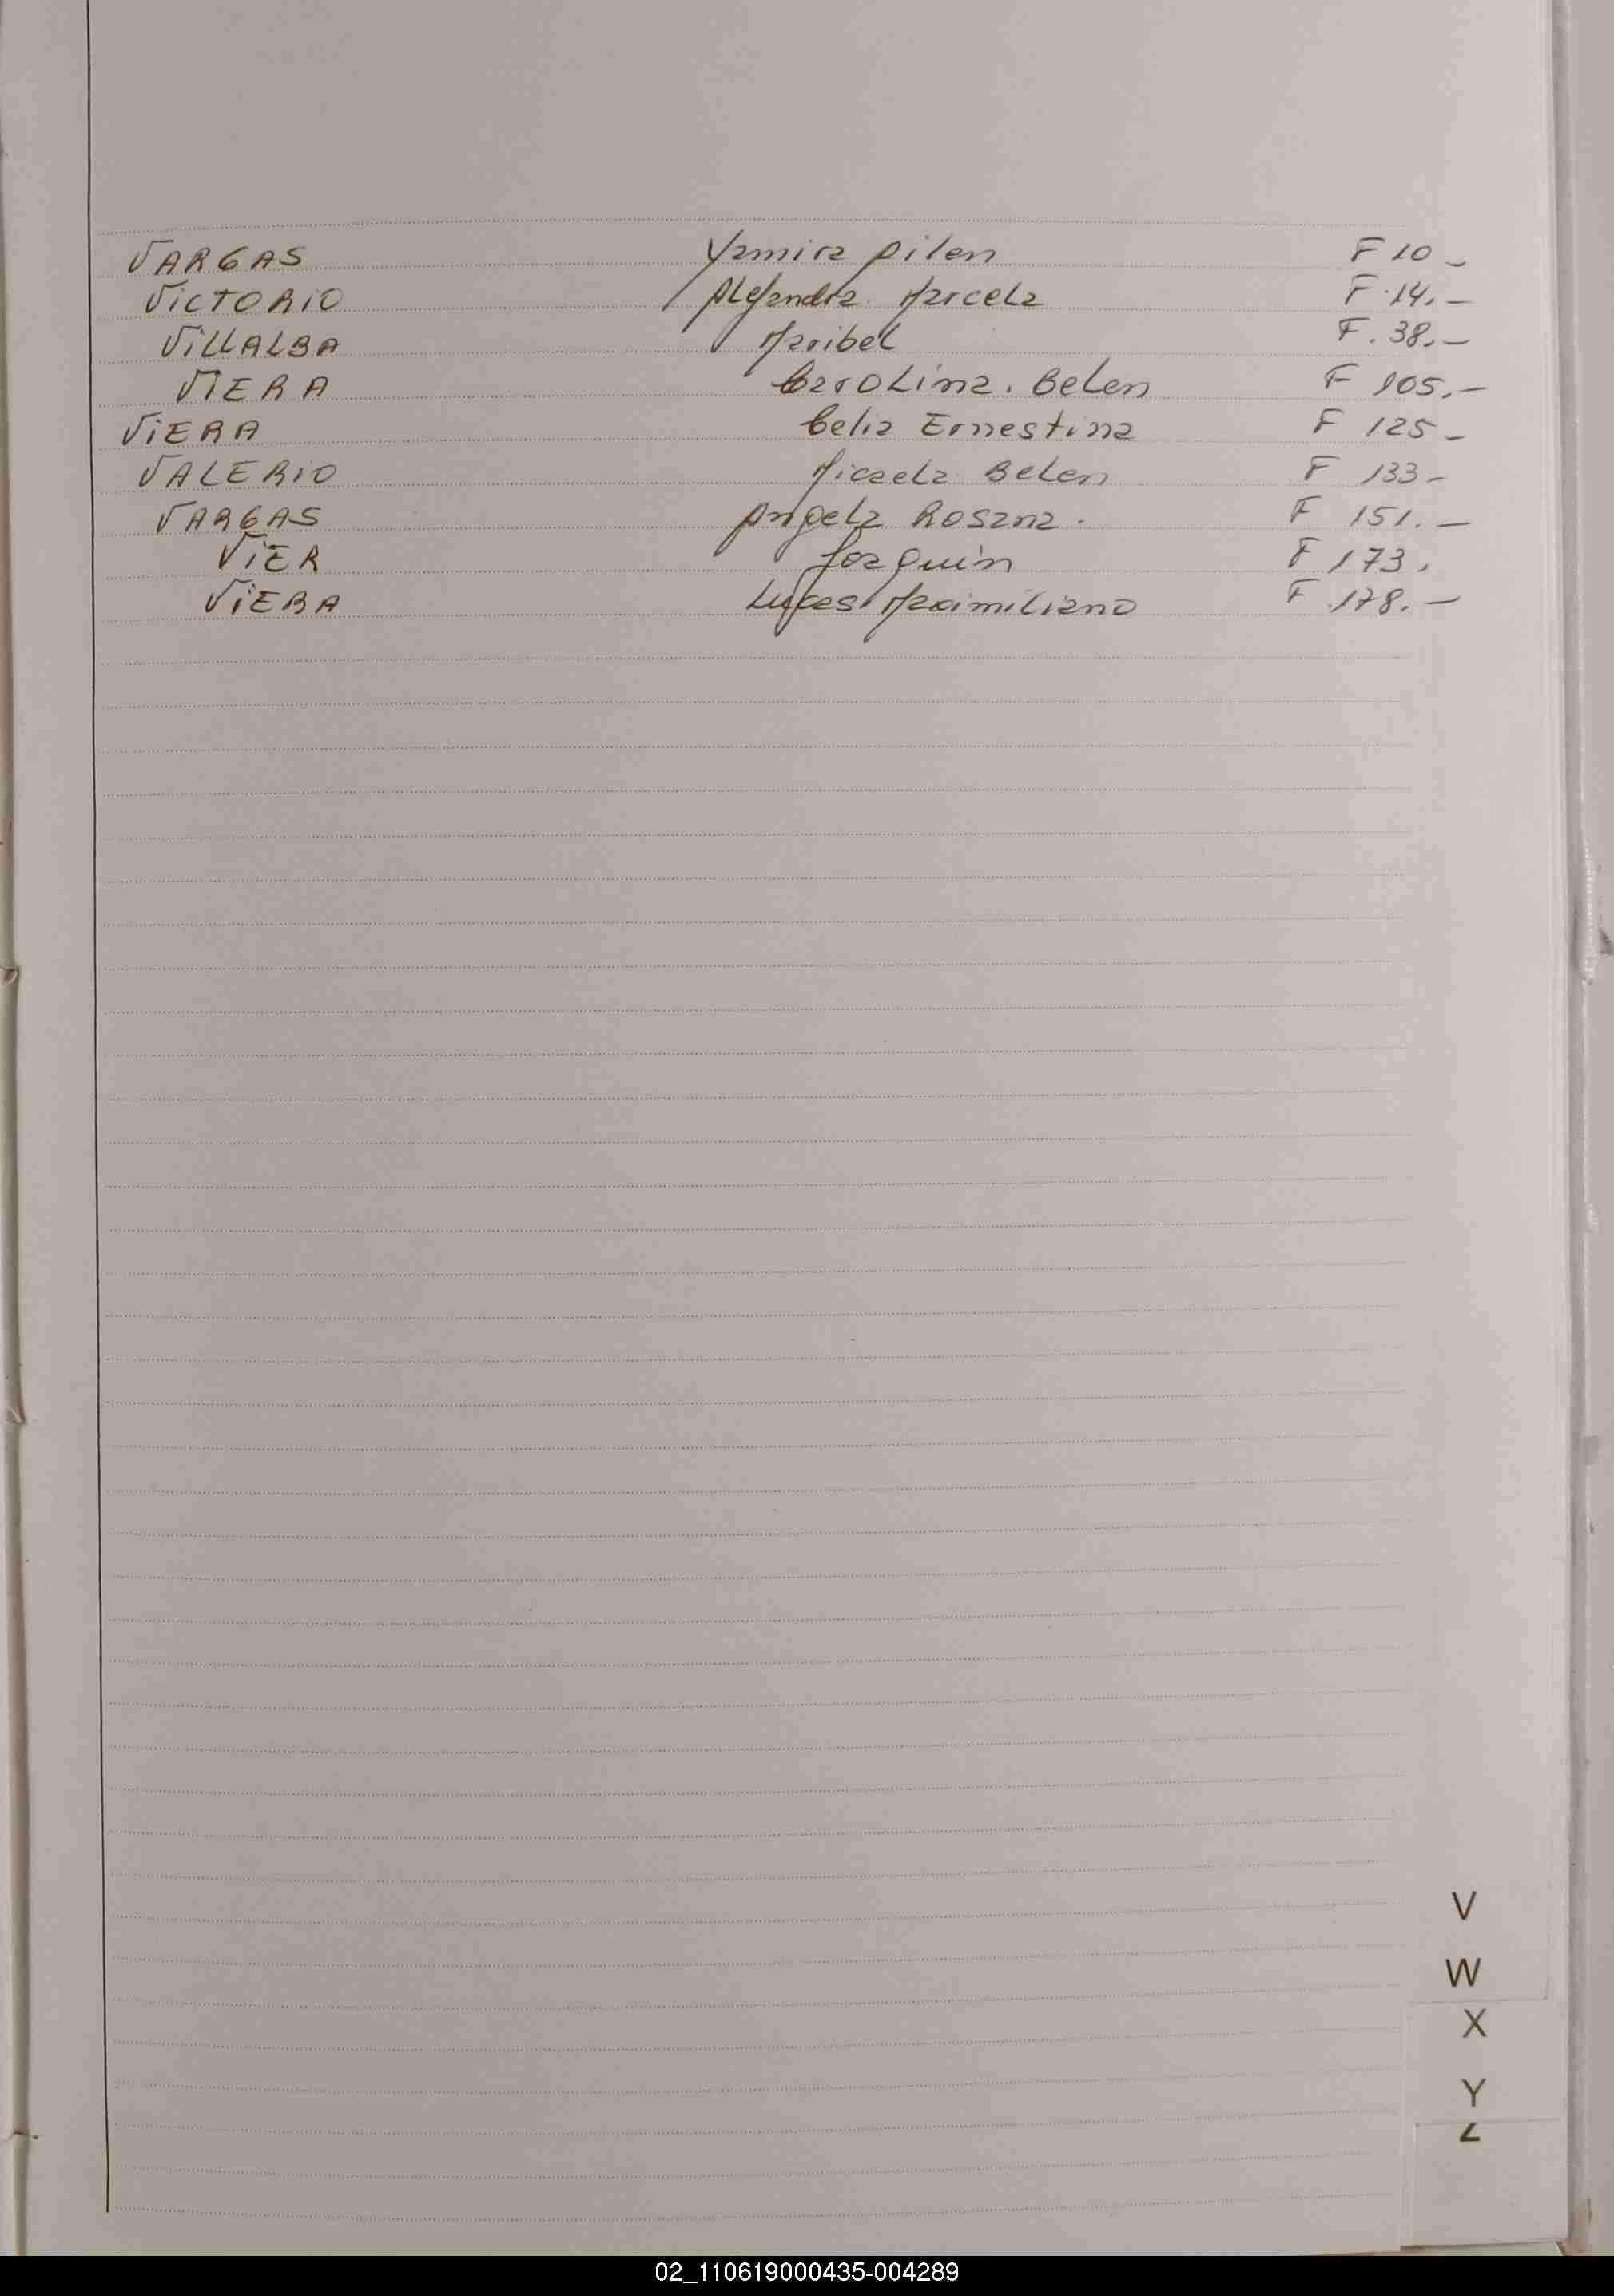 VARGAS Yamira Ailen F 10 -
VICTORIO Alejandra. Marcela F. 14. -
VILLALBA Maribel F. 38. -
VIERA Carolina. Belen F 105. -
VIERA Celia Ernestina F 125 -
VALERIO Micaela Belen F 133 -
VARGAS Angela Rosana. F 151. -
VIER Joaquin F 173.
VIERA Lucas Maximiliano F 178. -
V
W
X
Y
Z
02_110619000435-004289